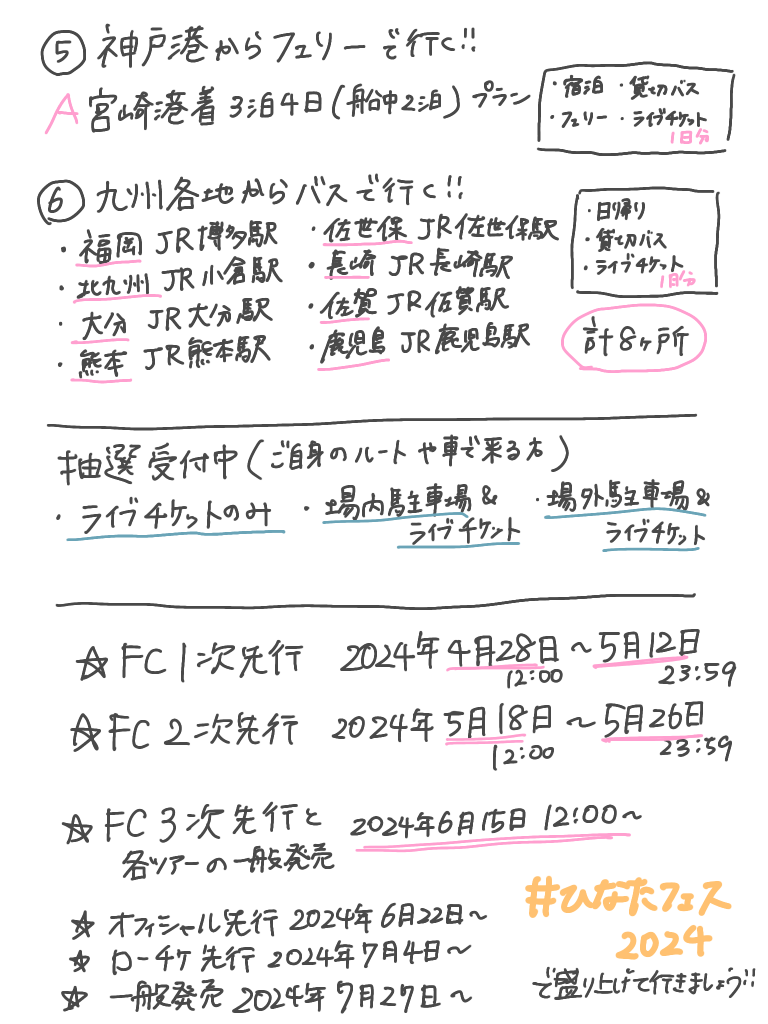 ⑤ 神戸港からフェリーで行く!!
A 宮崎港着 3泊4日(船中2泊) プラン
・宿泊 ・貸切バス
・フェリー ・ライブチケット
1日分
⑥ 九州各地からバスで行く!!
・福岡 JR博多駅
・北九州 JR小倉駅
・大分 JR大分駅
・熊本 JR熊本駅
・佐世保 JR佐世保駅
・長崎 JR長崎駅
・佐賀 JR佐賀駅
・鹿児島 JR鹿児島駅
・日帰り
・貸切バス
・ライブチケット
1日分
計8ヶ所
抽選受付中(ご自身のルートや車で来る方)
・ライブチケットのみ
・場内駐車場&
ライブチケット
・場外駐車場&
ライブチケット
☆FC1次先行 2024年4月28日~5月12日
12:00 23:59
☆FC2次先行 2024年5月18日~5月26日
12:00 23:59
☆FC3次先行と
各ツアーの一般発売
2024年6月15日 12:00~
☆オフィシャル先行 2024年6月22日~
☆ローチケ先行 2024年7月4日~
☆一般発売 2024年7月27日~
#ひなたフェス
2024
で盛り上げて行きましょう!!